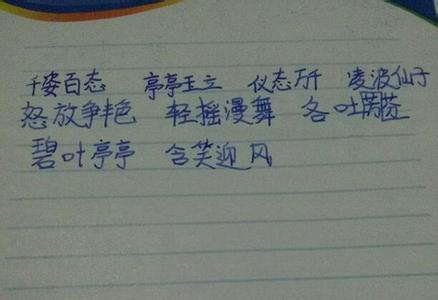 千姿百态 亭亭玉立 仪态万千 凌波仙子
怒放争艳 轻摇漫舞 各吐芬芳
碧叶亭亭 含笑迎风